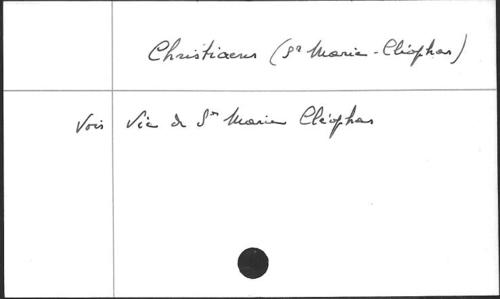 Christiaens (Sr Marie-Cléophas)
Voir Vie de Sr Marie Cléophas